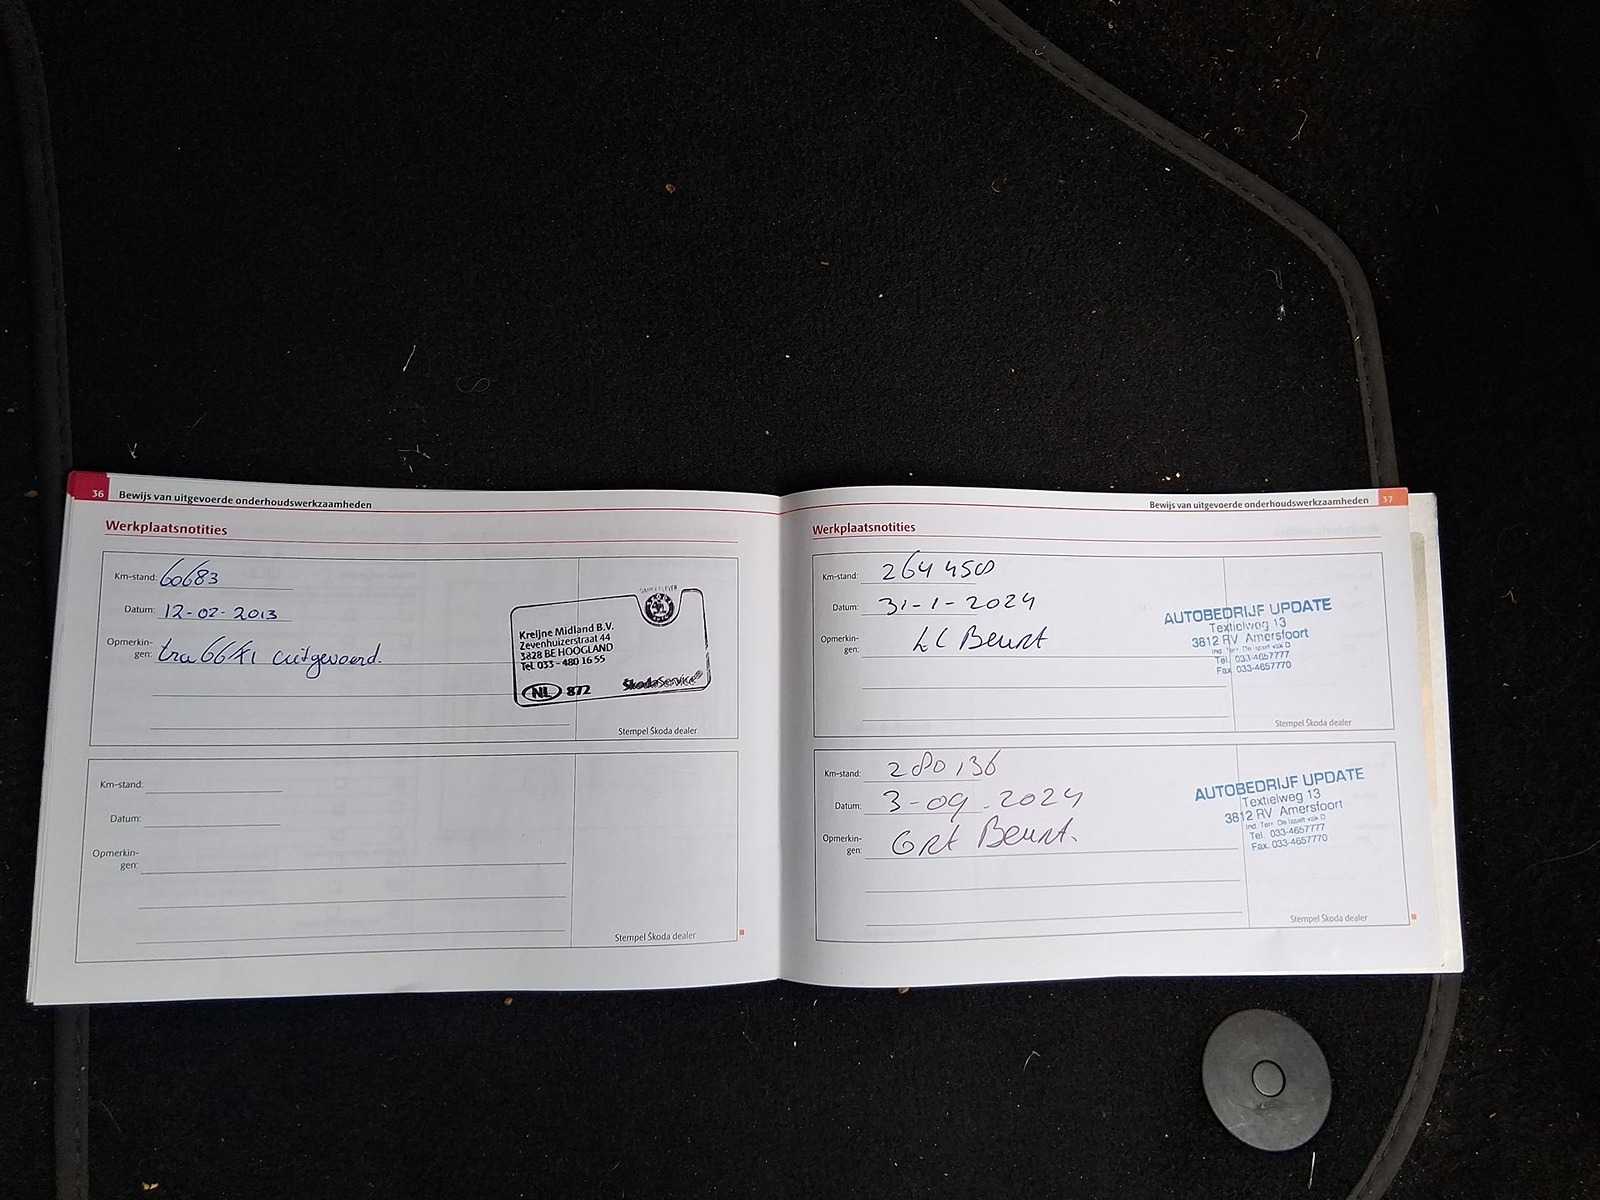 36 Bewijs van uitgevoerde onderhoudswerkzaamheden
Werkplaatsnotities
Km-stand: 60683
Datum: 12-02-2013
Opmerkin-
gen: uitgevoerd.
Kreijne Midland B.V.
Zevenhuizerstraat 44
3828 BE HOOGLAND
Tel. 033 - 480 16 55
NL 872 ŠkodaService
Stempel Škoda dealer
Km-stand:
Datum:
Opmerkin-
gen:
Stempel Škoda dealer
Bewijs van uitgevoerde onderhoudswerkzaamheden 37
Werkplaatsnotities
Km-stand: 264 450
Datum: 31-1-2024
Opmerkin-
gen: Beurt
AUTOBEDRIJF UPDATE
Textielweg 13
3812 RV Amersfoort
Ind. Terr. De Isselt vak D
Tel. 033-4657777
Fax. 033-4657770
Stempel Škoda dealer
Km-stand: 280136
Datum: 3-09-2024
Opmerkin-
gen: Grt Beurt.
AUTOBEDRIJF UPDATE
Textielweg 13
3812 RV Amersfoort
Ind. Terr. De Isselt vak D
Tel. 033-4657777
Fax. 033-4657770
Stempel Škoda dealer